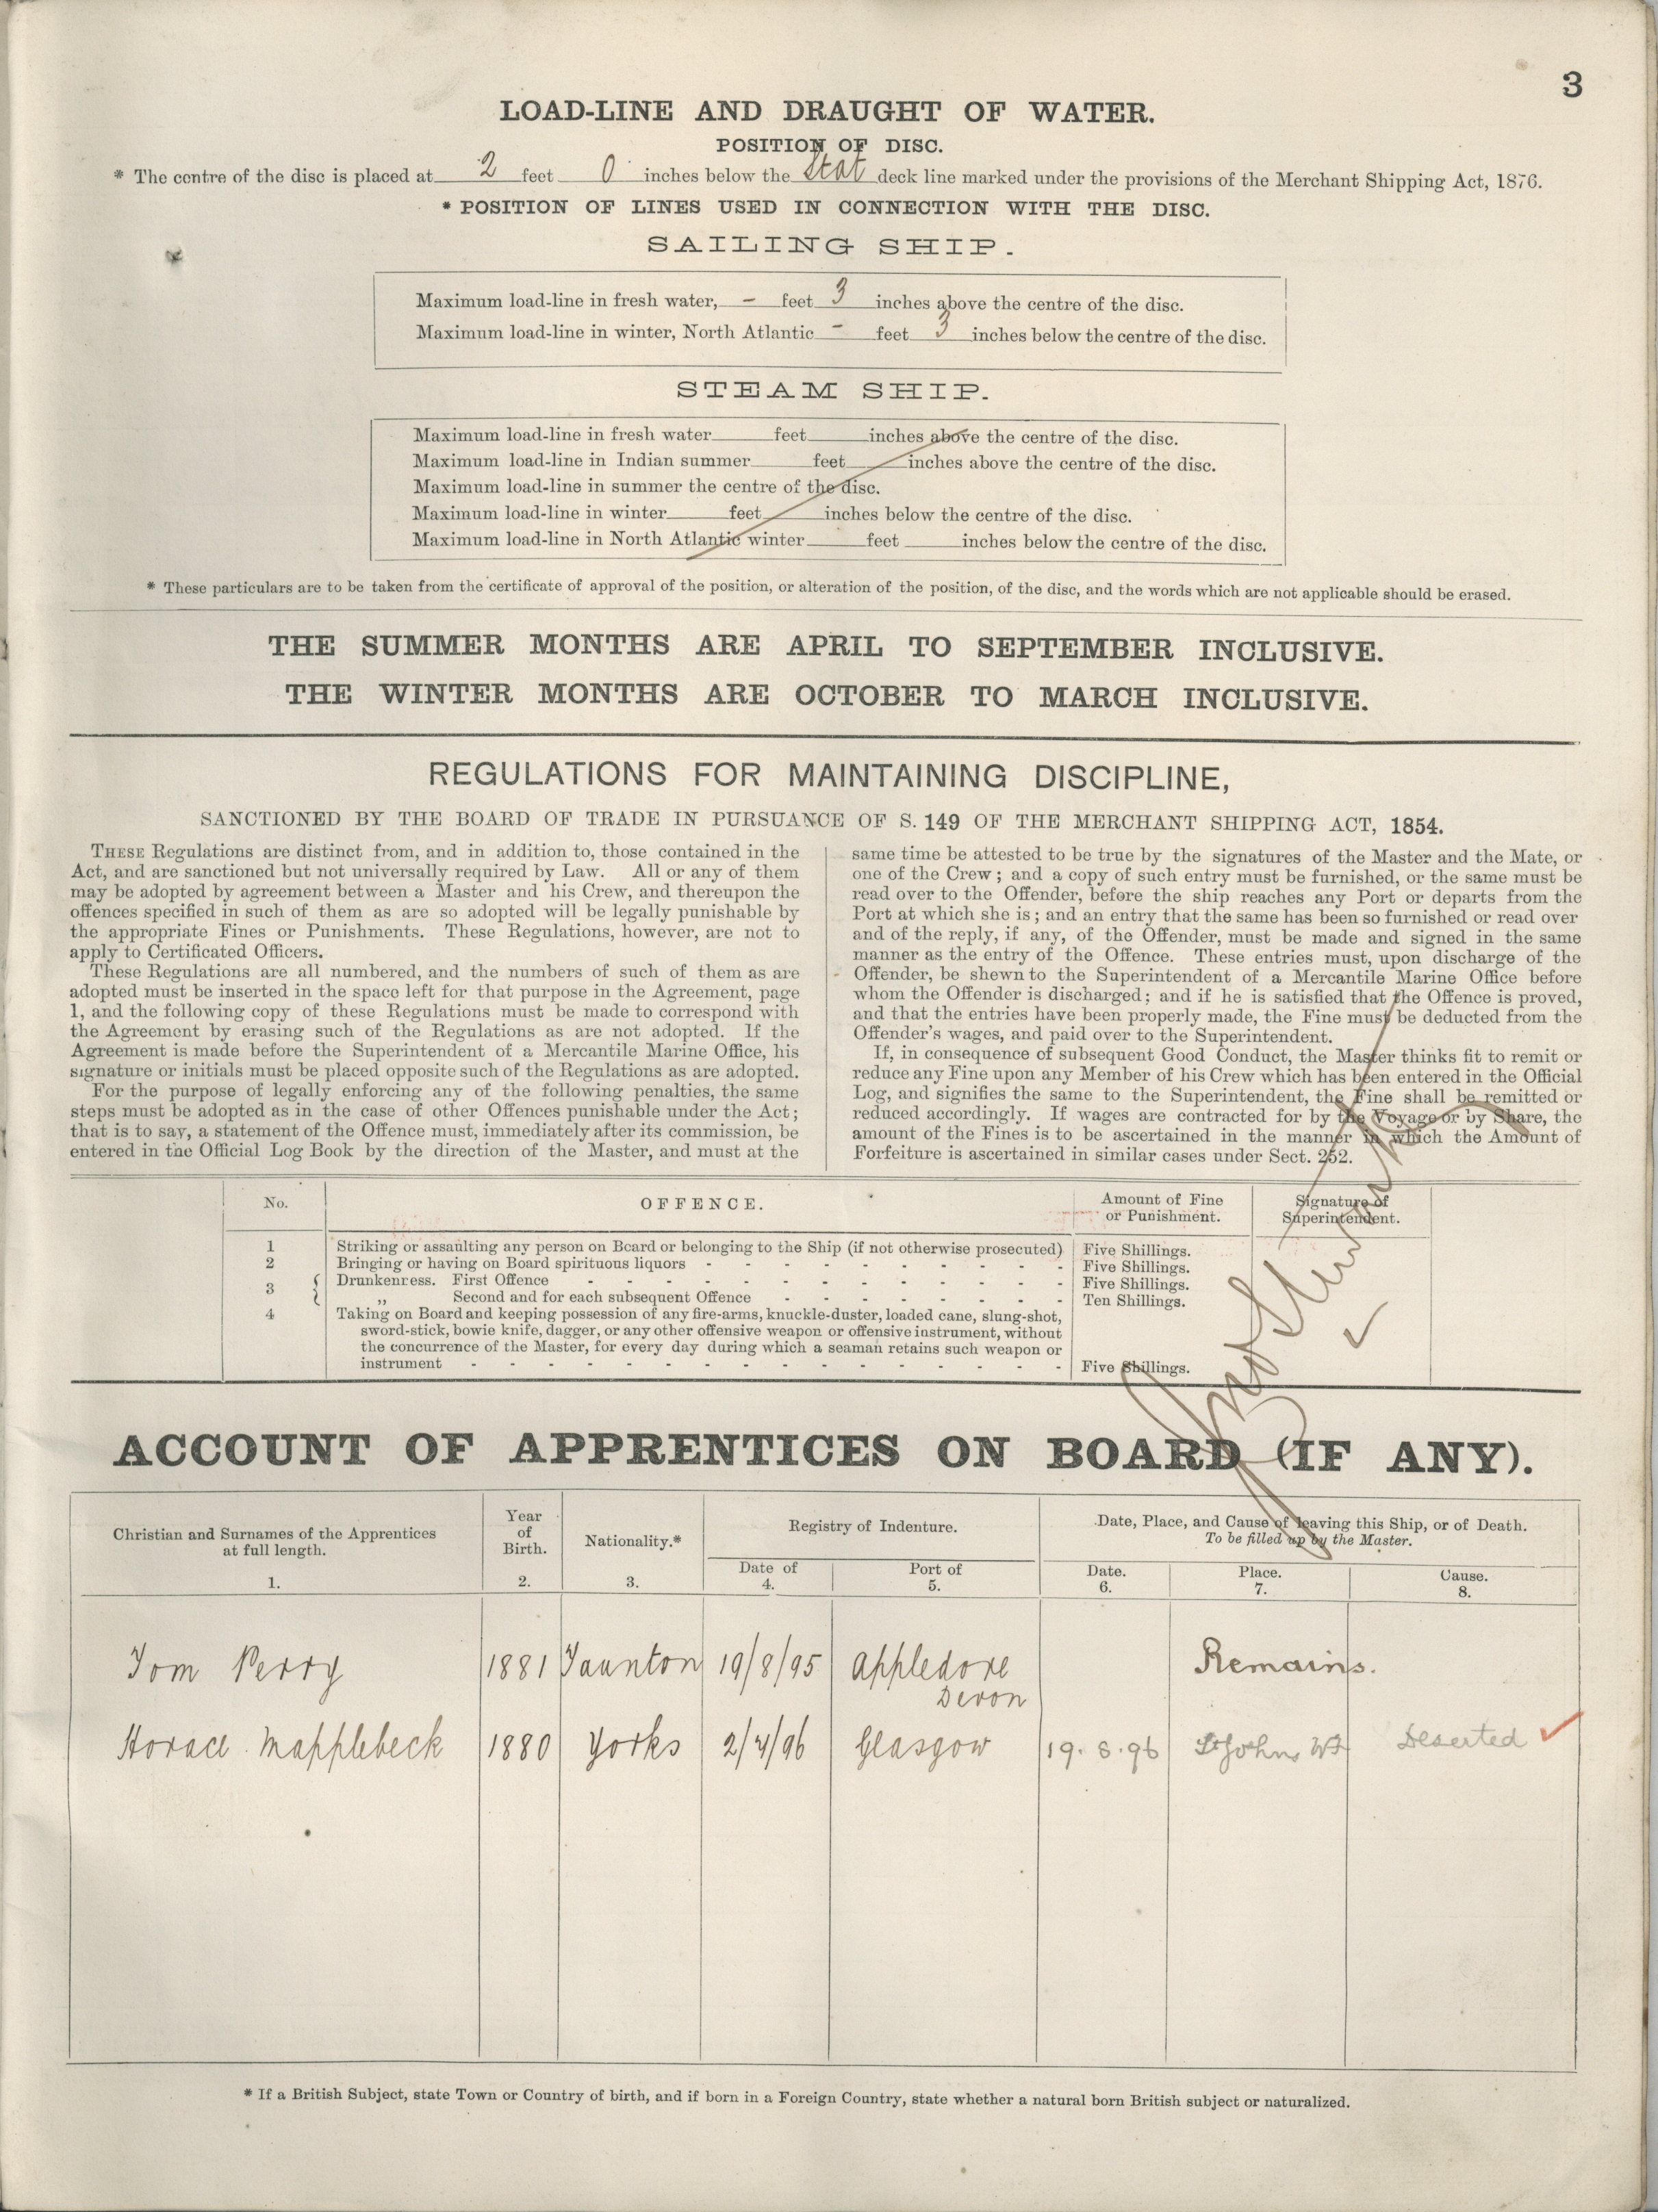 3
LOAD-LINE AND DRAUGHT OF WATER.
POSITION OF DISC.
* The centre of the disc is placed at 2 feet 0 inches below the Stat deck line marked under the provisions of the Merchant Shipping Act, 1876.
* POSITION OF LINES USED IN CONNECTION WITH THE DISC.
SAILING SHIP.
Maximum load-line in fresh water, - feet 3 inches above the centre of the disc.
Maximum load-line in winter, North Atlantic - feet 3 inches below the centre of the disc.
STEAM SHIP.
Maximum load-line in fresh water feet inches above the centre of the disc.
Maximum load-line in Indian summer feet inches above the centre of the disc.
Maximum load-line in summer the centre of the disc.
Maximum load-line in winter feet inches below the centre of the disc.
Maximum load-line in North Atlantic winter feet inches below the centre of the disc.
* These particulars are to be taken from the certificate of approval of the position, or alteration of the position, of the disc, and the words which are not applicable should be erased.
THE SUMMER MONTHS ARE APRIL TO SEPTEMBER INCLUSIVE.
THE WINTER MONTHS ARE OCTOBER TO MARCH INCLUSIVE.
REGULATIONS FOR MAINTAINING DISCIPLINE,
SANCTIONED BY THE BOARD OF TRADE IN PURSUANCE OF S. 149 OF THE MERCHANT SHIPPING ACT, 1854.
THESE Regulations are distinct from, and in addition to, those contained in the
Act, and are sanctioned but not universally required by Law. All or any of them
may be adopted by agreement between a Master and his Crew, and thereupon the
offences specified in such of them as are so adopted will be legally punishable by
the appropriate Fines or Punishments. These Regulations, however, are not to
apply to Certificated Officers.
These Regulations are all numbered, and the numbers of such of them as are
adopted must be inserted in the space left for that purpose in the Agreement, page
1, and the following copy of these Regulations must be made to correspond with
the Agreement by erasing such of the Regulations as are not adopted. If the
Agreement is made before the Superintendent of a Mercantile Marine Office, his
signature or initials must be placed opposite such of the Regulations as are adopted.
For the purpose of legally enforcing any of the following penalties, the same
steps must be adopted as in the case of other Offences punishable under the Act;
that is to say, a statement of the Offence must, immediately after its commission, be
entered in the Official Log Book by the direction of the Master, and must at the
same time be attested to be true by the signatures of the Master and the Mate, or
one of the Crew; and a copy of such entry must be furnished, or the same must be
read over to the Offender, before the ship reaches any Port or departs from the
Port at which she is; and an entry that the same has been so furnished or read over
and of the reply, if any, of the Offender, must be made and signed in the same
manner as the entry of the Offence. These entries must, upon discharge of the
Offender, be shewn to the Superintendent of a Mercantile Marine Office before
whom the Offender is discharged; and if he is satisfied that the Offence is proved,
and that the entries have been properly made, the Fine must be deducted from the
Offender's wages, and paid over to the Superintendent.
If, in consequence of subsequent Good Conduct, the Master thinks fit to remit or
reduce any Fine upon any Member of his Crew which has been entered in the Official
Log, and signifies the same to the Superintendent, the Fine shall be remitted or
reduced accordingly. If wages are contracted for by the Voyage or by Share, the
amount of the Fines is to be ascertained in the manner in which the Amount of
Forfeiture is ascertained in similar cases under Sect. 252.
No. OFFENCE. Amount of Fine or Punishment. Signature of Superintendent.
1 Striking or assaulting any person on Board or belonging to the Ship (if not otherwise prosecuted) Five Shillings.
2 Bringing or having on Board spirituous liquors - - - - - - - - - - Five Shillings.
3 { Drunkenness. First Offence - - - - - - - - - - - - - Five Shillings.
„ Second and for each subsequent Offence - - - - - - - - Ten Shillings.
4 Taking on Board and keeping possession of any fire-arms, knuckle-duster, loaded cane, slung-shot,
sword-stick, bowie knife, dagger, or any other offensive weapon or offensive instrument, without
the concurrence of the Master, for every day during which a seaman retains such weapon or
instrument - - - - - - - - - - - - - - - - Five Shillings.
ACCOUNT OF APPRENTICES ON BOARD (IF ANY).
Christian and Surnames of the Apprentices at full length. Year of Birth. Nationality.* Registry of Indenture. Date, Place, and Cause of leaving this Ship, or of Death.
To be filled up by the Master.
Date of Port of Date. Place. Cause.
1. 2. 3. 4. 5. 6. 7. 8.
Tom Perry 1881 Taunton 19/8/95 Appledore Remains.
Devon
Horace Mapplebeck 1880 Yorks 2/4/96 Glasgow 19.8.96 St Johns NF Deserted
* If a British Subject, state Town or Country of birth, and if born in a Foreign Country, state whether a natural born British subject or naturalized.